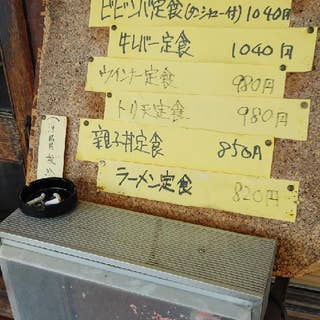 ビビンバ定食(タンシャー付)1040円
牛レバー定食 1040円
ウインナー定食 980円
トリ天定食 980円
親子丼定食 850円
ラーメン定食 820円